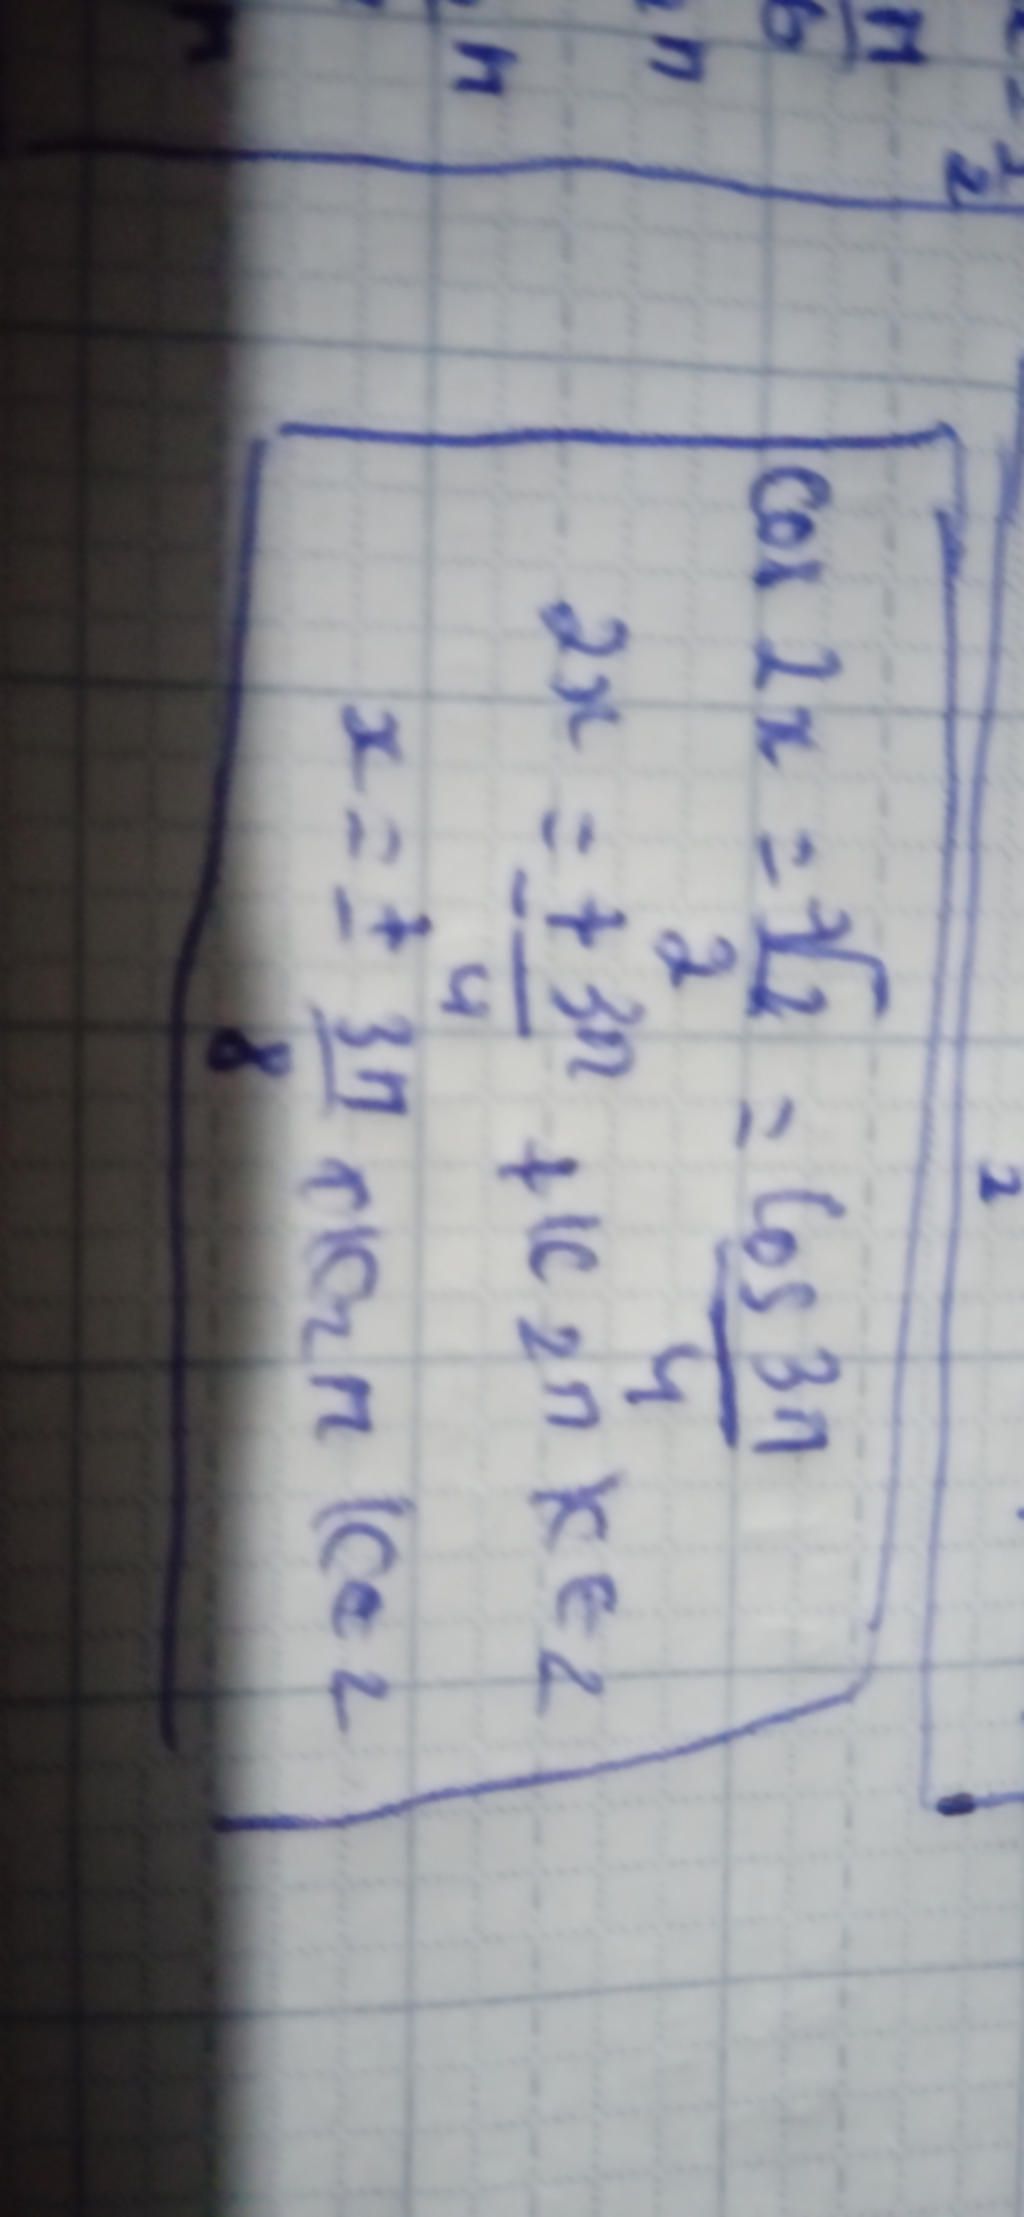 cos 2x = √2/2 = cos 3π/4
2x = ± 3π/4 + k2π k∈Z
x = ± 3π/8 + k2π k∈Z